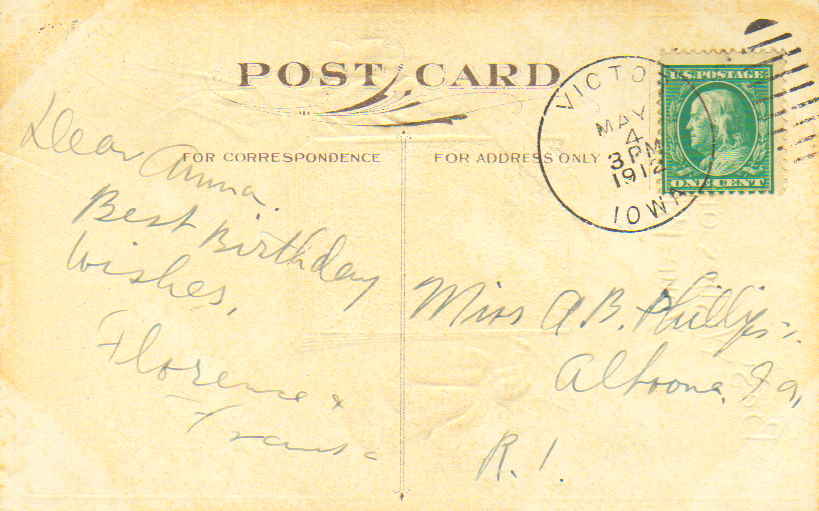 POST CARD
FOR CORRESPONDENCE
FOR ADDRESS ONLY
VICTO
MAY
4
3 PM
1912
IOWA
U.S. POSTAGE
ONE CENT
Dear Anna.
Best Birthday
Wishes,
Florence &
Miss A B. Phillips.
Altoona, Ia,
R. 1.